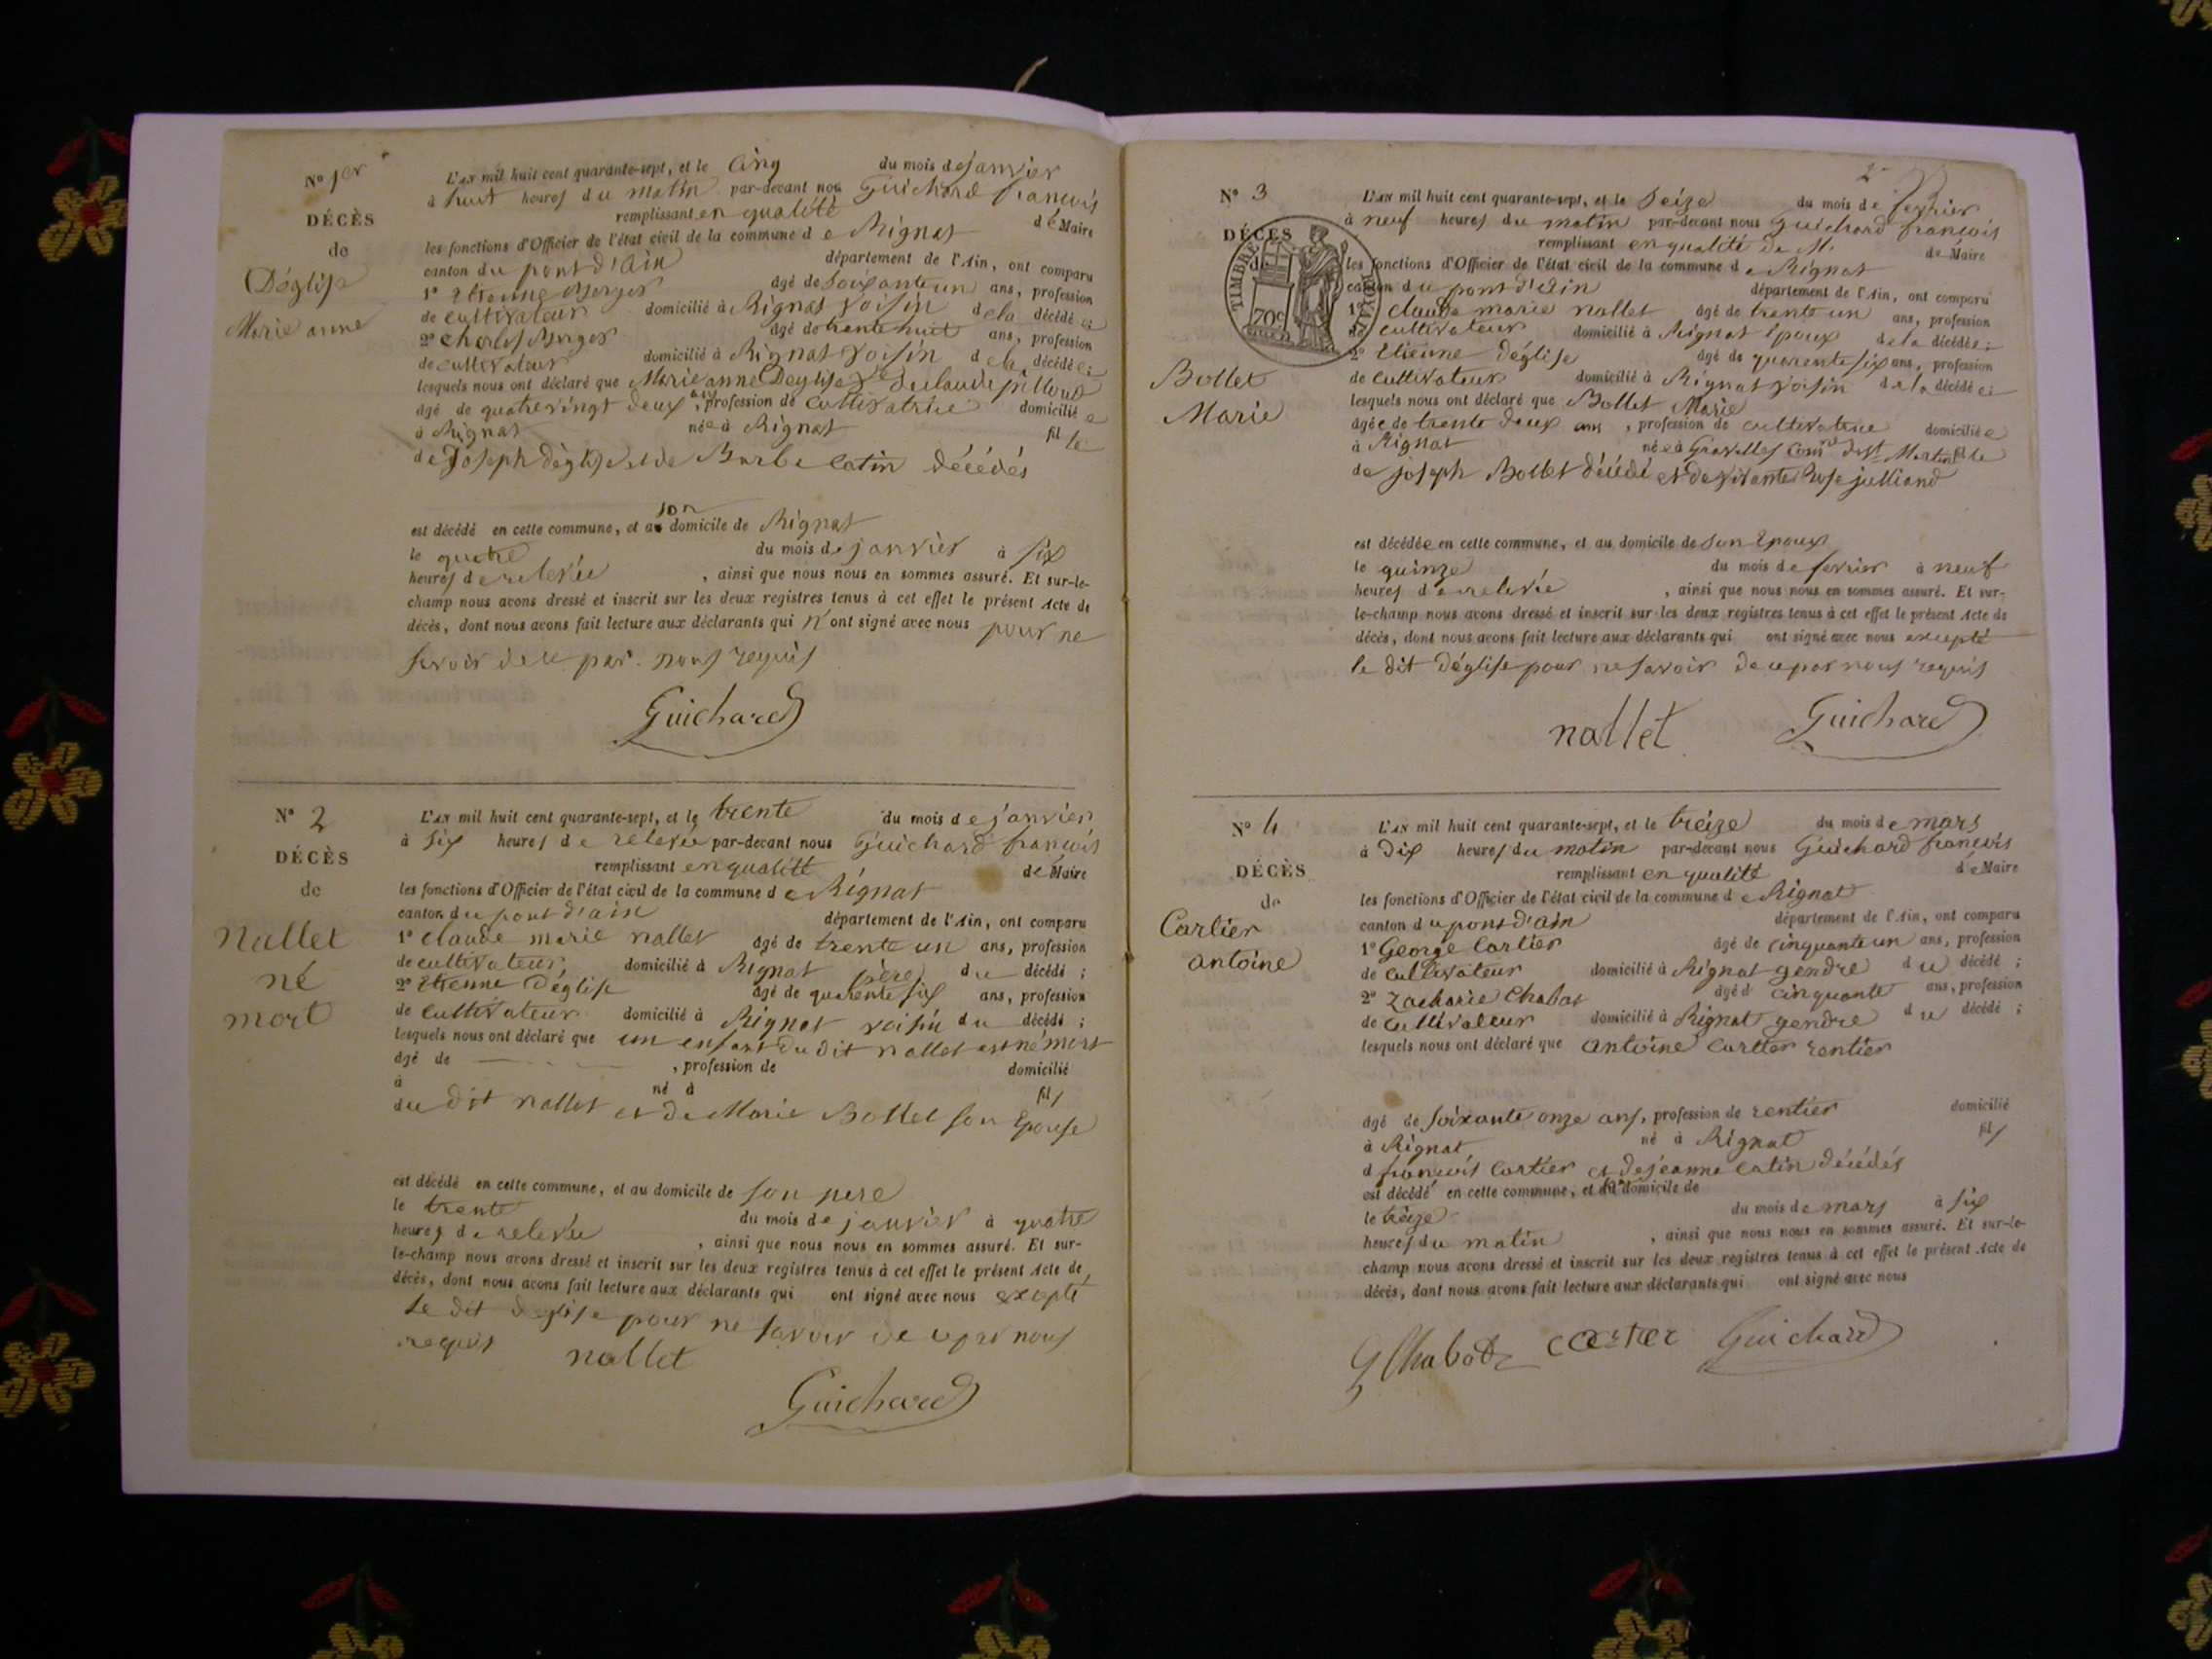 N° 1er
DÉCÈS
de
Déglise
Marie anne
L'AN mil huit cent quarante-sept, et le Cinq du mois de janvier
à huit heures du matin par-devant nous Guichard françois
remplissant en qualité de Maire
les fonctions d'Officier de l'état civil de la commune de Rignat
canton du pont d'ain département de l'Ain, ont comparu
1° Etienne Berger âgé de Soixante un ans, profession
de cultivateur domicilié à Rignat voisin de la décédée;
2° Charles Berger âgé de trente huit ans, profession
de cultivateur domicilié à Rignat voisin de la décédée;
lesquels nous ont déclaré que Marie anne Déglise Ve de claude pilloud
âgé de quatrevingt deux ans, profession de Cultivatrice domiciliée
à Rignat née à Rignat fille
de Joseph Déglise et de Barbe Catin décédés
est décédé en cette commune, et à son domicile de Rignat
le quatre du mois de janvier à six
heures de relevée, ainsi que nous nous en sommes assuré. Et sur-le-
champ nous avons dressé et inscrit sur les deux registres tenus à cet effet le présent Acte de
décès, dont nous avons fait lecture aux déclarants qui n'ont signé avec nous pour ne
savoir de ce par nous requis
Guichard
N° 2
DÉCÈS
de
Nallet
né
mort
L'AN mil huit cent quarante-sept, et le trente du mois de janvier
à six heures de relevée par-devant nous Guichard françois
remplissant en qualité de Maire
les fonctions d'Officier de l'état civil de la commune de Rignat
canton du pont d'ain département de l'Ain, ont comparu
1° claude marie nallet âgé de trente un ans, profession
de cultivateur domicilié à Rignat père du décédé;
2° Etienne Déglise âgé de quarente six ans, profession
de cultivateur domicilié à Rignat voisin du décédé;
lesquels nous ont déclaré que un enfant du dit nallet est né mort
âgé de , profession de domicilié
à né à fils
du dit nallet et de Marie Bollet son Epouse
est décédé en cette commune, et au domicile de son pere
le trente du mois de janvier à quatre
heures de relevée, ainsi que nous nous en sommes assuré. Et sur-
le-champ nous avons dressé et inscrit sur les deux registres tenus à cet effet le présent Acte de
décès, dont nous avons fait lecture aux déclarants qui ont signé avec nous excepté
le dit déglise pour ne savoir de ce par nous
requis
nallet
Guichard
2
N° 3
DÉCÈS
de
TIMBRE ROYAL
70c
Bollet
Marie
L'AN mil huit cent quarante-sept, et le Seize du mois de fevrier
à neuf heures du matin par-devant nous Guichard françois
remplissant en qualité de M. de Maire
les fonctions d'Officier de l'état civil de la commune de Rignat
canton du pont d'ain département de l'Ain, ont comparu
1° claude marie nallet âgé de trente un ans, profession
de cultivateur domicilié à Rignat Epoux de la décédée;
2° Etienne Déglise âgé de quarente six ans, profession
de cultivateur domicilié à Rignat voisin de la décédée;
lesquels nous ont déclaré que Bollet Marie
âgée de trente deux ans, profession de cultivatrice domiciliée
à Rignat née à Gravelles Comne de St Martin fille
de Joseph Bollet décédé et de vivante Rose julliand
est décédée en cette commune, et au domicile de son Epoux
le quinze du mois de fevrier à neuf
heures de relevée, ainsi que nous nous en sommes assuré. Et sur-
le-champ nous avons dressé et inscrit sur les deux registres tenus à cet effet le présent Acte de
décès, dont nous avons fait lecture aux déclarants qui ont signé avec nous excepté
le dit déglise pour ne savoir de ce par nous requis
nallet Guichard
N° 4
DÉCÈS
de
Cartier
antoine
L'AN mil huit cent quarante-sept, et le treize du mois de mars
à dix heures du matin par-devant nous Guichard françois
remplissant en qualité de Maire
les fonctions d'Officier de l'état civil de la commune de Rignat
canton du pont d'ain département de l'Ain, ont comparu
1° George Cartier âgé de cinquante un ans, profession
de cultivateur domicilié à Rignat gendre du décédé;
2° Zacharie Chabat âgé d cinquante ans, profession
de cultivateur domicilié à Rignat gendre du décédé;
lesquels nous ont déclaré que antoine Cartier rentier
âgé de soixante onze ans, profession de rentier domicilié
à Rignat né à Rignat fils
d françois Cartier et de jeanne Catin décédés
est décédé en cette commune, et domicile de
le treize du mois de mars à six
heures du matin, ainsi que nous nous en sommes assuré. Et sur-le-
champ nous avons dressé et inscrit sur les deux registres tenus à cet effet le présent Acte de
décès, dont nous avons fait lecture aux déclarants qui ont signé avec nous
Chabot cartier Guichard